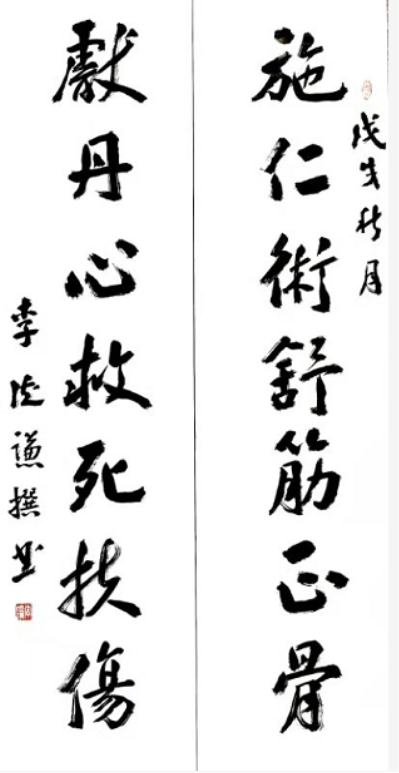 戊戌秋月
施仁術舒筋正骨
獻丹心救死扶傷
李謙撰書